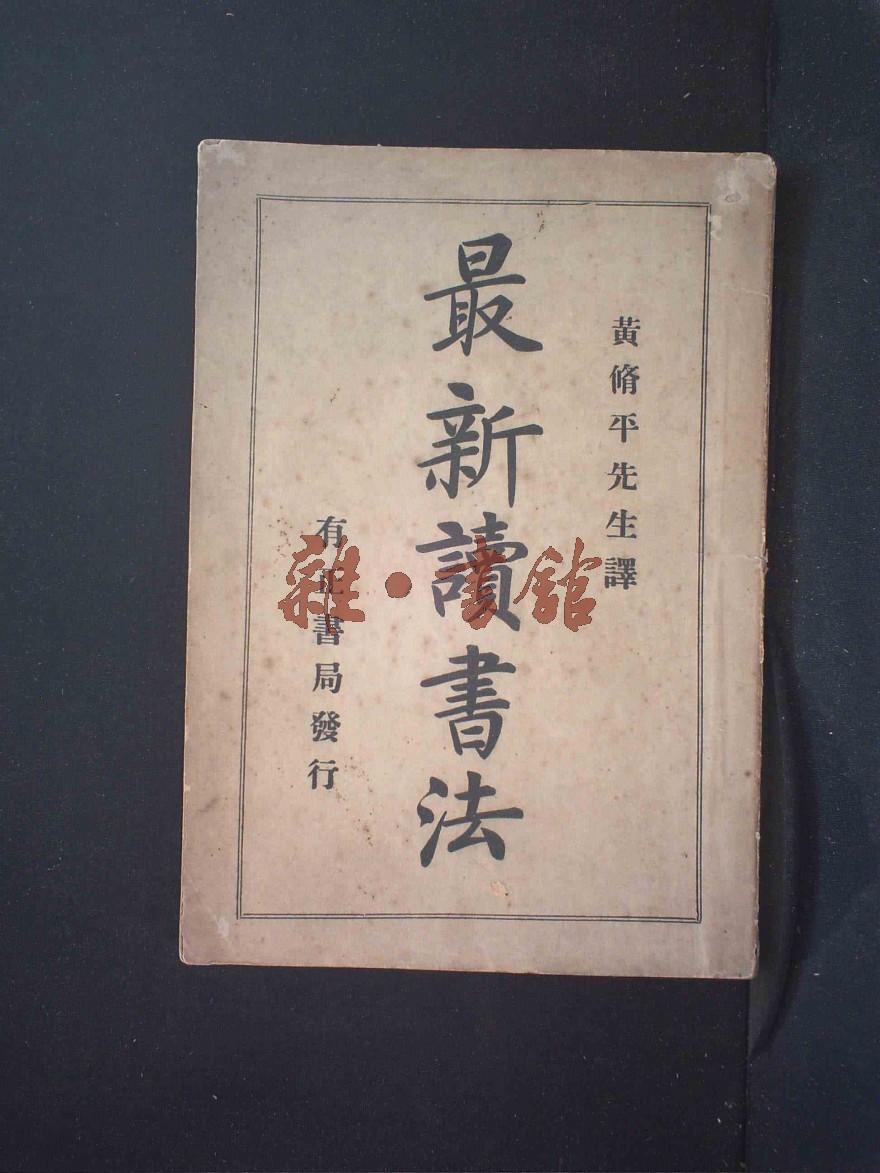 黃脩平先生譯
最新讀書法
有正書局發行
雜·書館